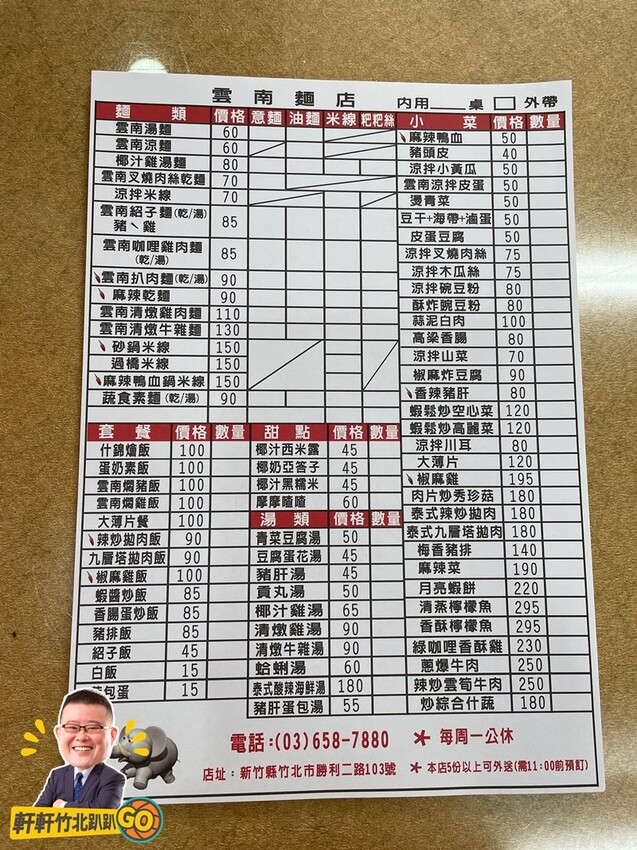 雲南麵店 內用 桌 外帶
麵類 價格 意麵 油麵 米線 粑粑絲
雲南湯麵 60
雲南涼麵 60
椰汁雞湯麵 80
雲南叉燒肉絲乾麵 70
涼拌米線 70
雲南紹子麵(乾/湯)
豬、雞 85
雲南咖哩雞肉麵
(乾/湯) 85
雲南扒肉麵(乾/湯) 90
麻辣乾麵 90
雲南清燉雞肉麵 110
雲南清燉牛雜麵 130
砂鍋米線 150
過橋米線 150
麻辣鴨血鍋米線 150
蔬食素麵(乾/湯) 90
套餐 價格 數量
什錦燴飯 100
蛋奶素飯 100
雲南燜豬飯 100
雲南燜雞飯 100
大薄片餐 100
辣炒拋肉飯 90
九層塔拋肉飯 90
椒麻雞飯 100
蝦醬炒飯 85
香腸蛋炒飯 85
豬排飯 85
紹子飯 45
白飯 15
包蛋 15
甜點 價格 數量
椰汁西米露 45
椰奶亞答子 45
椰汁黑糯米 45
摩摩喳喳 60
湯類 價格 數量
青菜豆腐湯 50
豆腐蛋花湯 45
豬肝湯 45
貢丸湯 50
椰汁雞湯 65
清燉雞湯 90
清燉牛雜湯 90
蛤蜊湯 60
泰式酸辣海鮮湯 180
豬肝蛋包湯 55
小菜 價格 數量
麻辣鴨血 50
豬頭皮 40
涼拌小黃瓜 50
雲南涼拌皮蛋 50
燙青菜 50
豆干+海帶+滷蛋 50
皮蛋豆腐 50
涼拌叉燒肉絲 75
涼拌木瓜絲 75
涼拌碗豆粉 80
酥炸豌豆粉 80
蒜泥白肉 100
高梁香腸 80
涼拌山菜 70
椒麻炸豆腐 90
香辣豬肝 80
蝦鬆炒空心菜 120
蝦鬆炒高麗菜 120
涼拌川耳 80
大薄片 120
椒麻雞 195
肉片炒秀珍菇 180
泰式辣炒拋肉 180
泰式九層塔拋肉 180
梅香豬排 140
麻辣菜 190
月亮蝦餅 220
清蒸檸檬魚 295
香酥檸檬魚 295
綠咖哩香酥雞 230
蔥爆牛肉 250
辣炒雲筍牛肉 250
炒綜合什蔬 180
電話:(03)658-7880 * 每周一公休
店址:新竹縣竹北市勝利二路103號 * 本店5份以上可外送(需11:00前預訂)
軒軒竹北趴趴GO